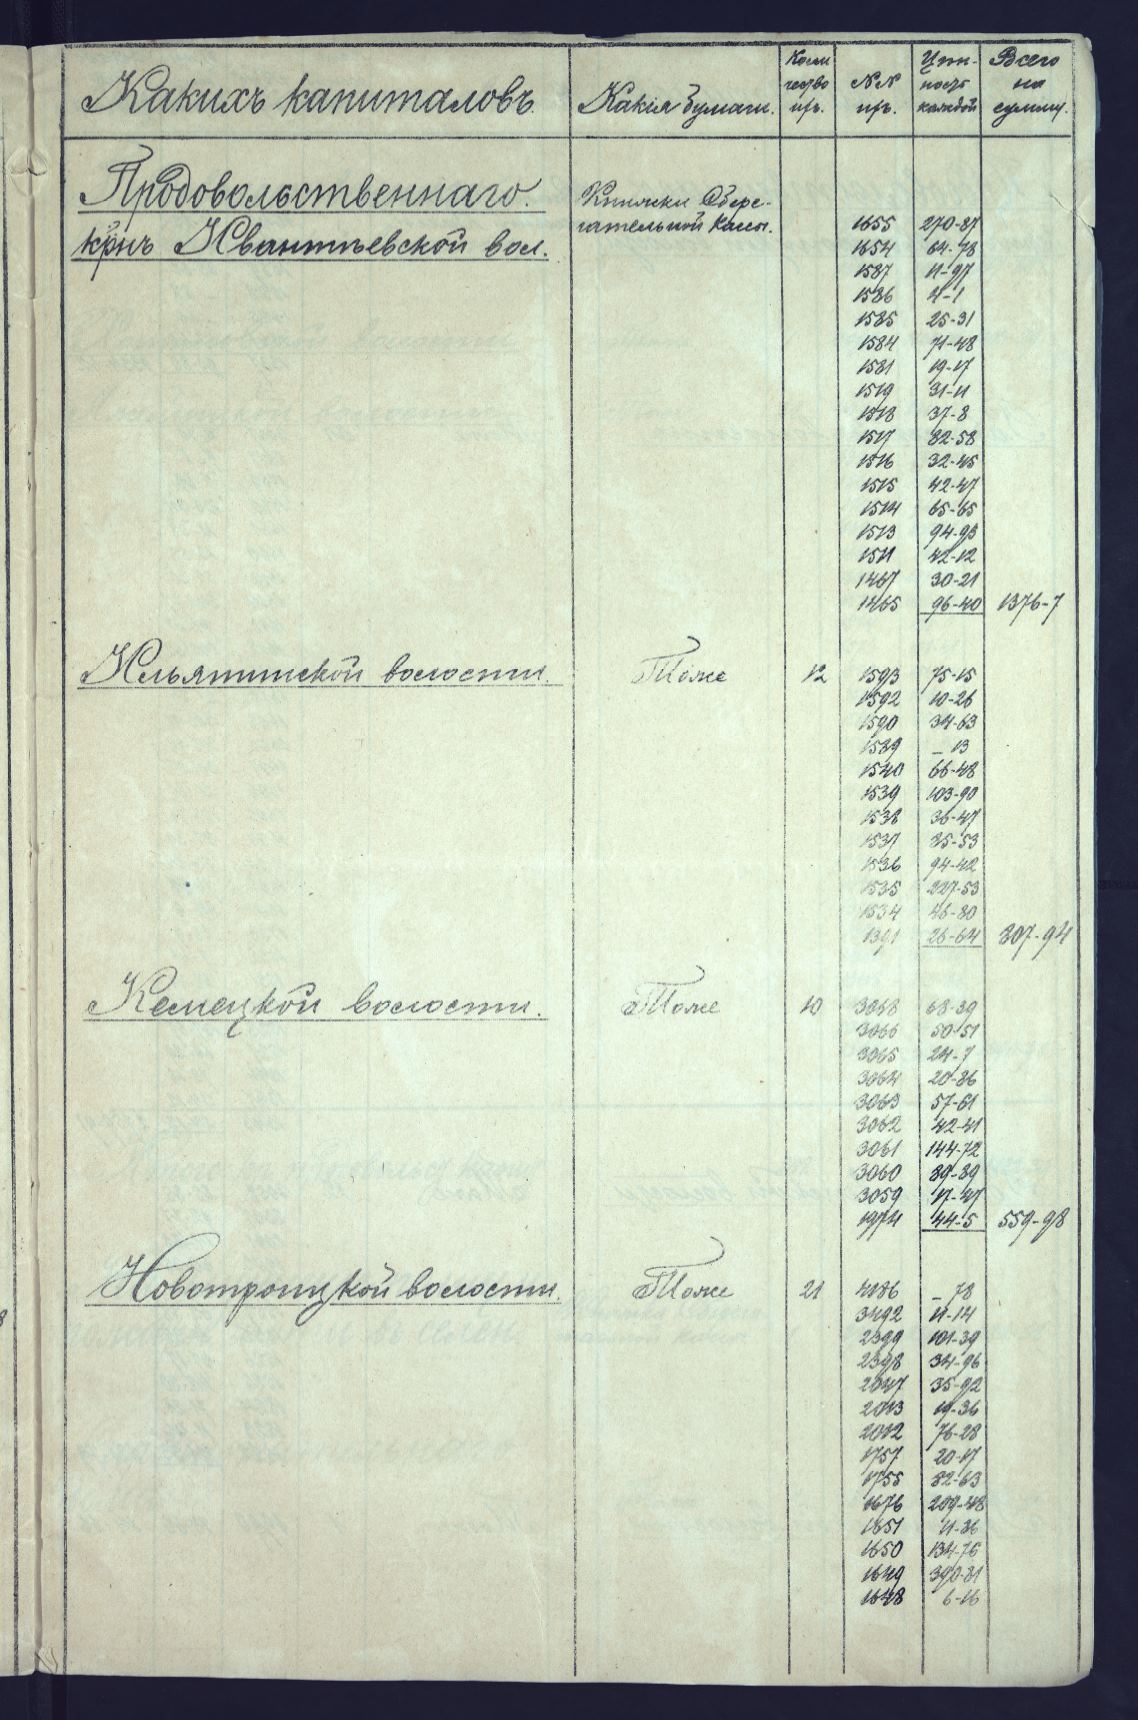 Какихъ капиталовъ
Какiя бумаги.
Коли
чество
пр.
№№
пр.
Цѣн-
ность
каждой
Всего
на
сумму.
Продовольственнаго
Книжки Сбере-
гательной кассы. 1655 270-87
крнъ Ивантѣевской вол. 1654 64-78
1587 11-97
1586 4-1
1585 25-31
1584 71-48
1581 19-17
1519 31-11
1518 37-8
1517 82-58
1516 32-45
1515 42-47
1514 65-65
1513 94-93
1511 42-12
1467 30-21
1465 96-40 1376-7
Ильятинской волости. Тоже 12 1593 75-15
1592 10-26
1590 34-63
1589 _ 13
1540 66-48
1539 103-90
1538 36-47
1537 85-53
1536 94-42
1535 227-53
1534 46-80
1391 26-64 807-94
Кемецкой волости. Тоже 10 3068 68-39
3066 50-51
3065 24-7
3064 20-86
3063 57-61
3062 42-41
3061 144-72
3060 89-89
3059 17-47
1974 44-5 559-98
Новотроицкой волости. Тоже 21 4186 _ 78
3492 11-14
2399 101-39
2398 34-96
2047 35-92
2013 19-36
2012 76-28
1757 20-17
1755 82-63
1676 209-48
1651 11-36
1650 134-76
1649 390-81
1648 6-16